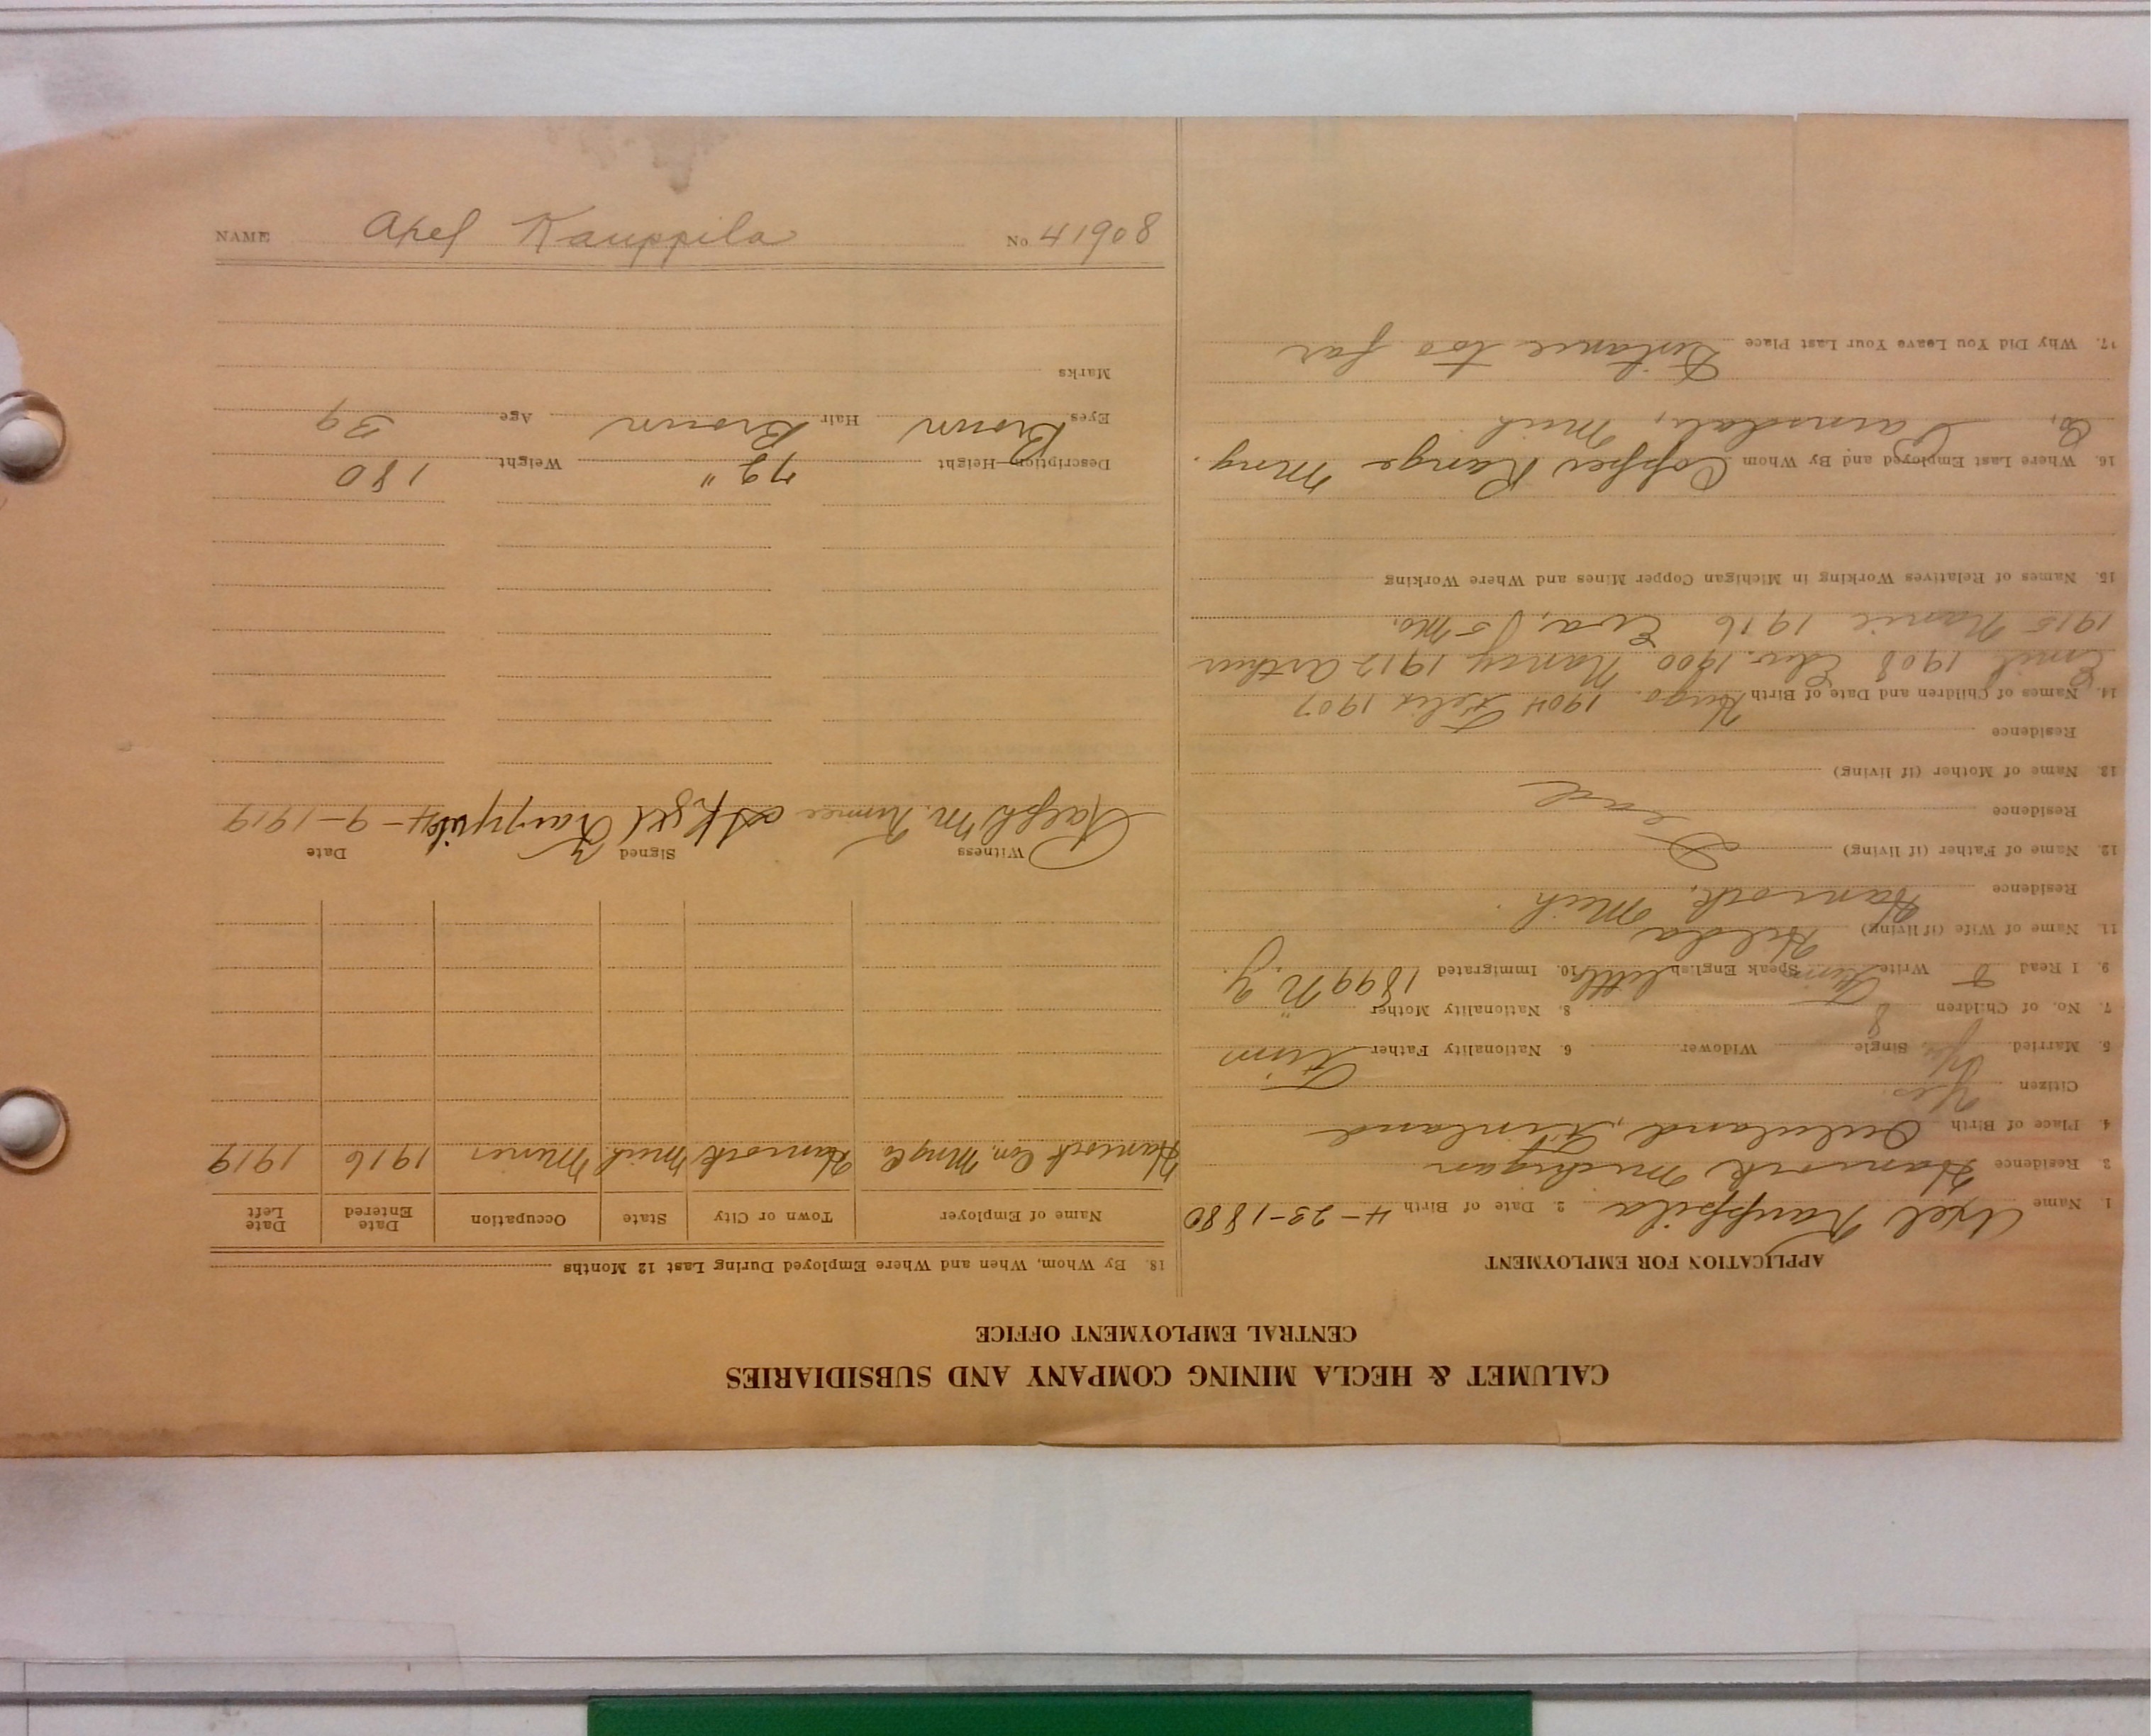 CALUMET & HECLA MINING COMPANY AND SUBSIDIARIES
CENTRAL EMPLOYMENT OFFICE
APPLICATION FOR EMPLOYMENT
1. Name Axel Kauppila 2. Date of Birth 4-23-1880
3. Residence Hancock Michigan
4. Place of Birth Finland
Citizen Yes
5. Married Yes Single Widower 6. Nationality Father Finn
7. No. of Children 8 8. Nationality Mother "
9. I Read & Write Finn Speak English little 10. Immigrated 1899 N.Y.
11. Name of Wife (if living) Hilda
Residence Hancock, Mich.
12. Name of Father (if living)
Residence Dead
13. Name of Mother (if living)
Residence
14. Names of Children and Date of Birth Hugo. 1904 Felix 1907
Emil 1908 1900 Nancy 1912 Arthur
1915 1916 Eva, 5 mo.
15. Names of Relatives Working in Michigan Copper Mines and Where Working
16. Where Last Employed and By Whom Copper Range Ming.
Co. Painsdale, Mich
17. Why Did You Leave Your Last Place Distance too far
18. By Whom, When and Where Employed During Last 12 Months
Name of Employer Town or City State Occupation Date Entered Date Left
Hancock Con. Mng Co Hancock Mich Miner 1916 1919
Witness Signed Date
Ralph M. Axel Kauppila 4-9-1919
Description—Height 72" Weight 180
Eyes Brown Hair Brown Age 39
Marks
NAME Axel Kauppila No 41908